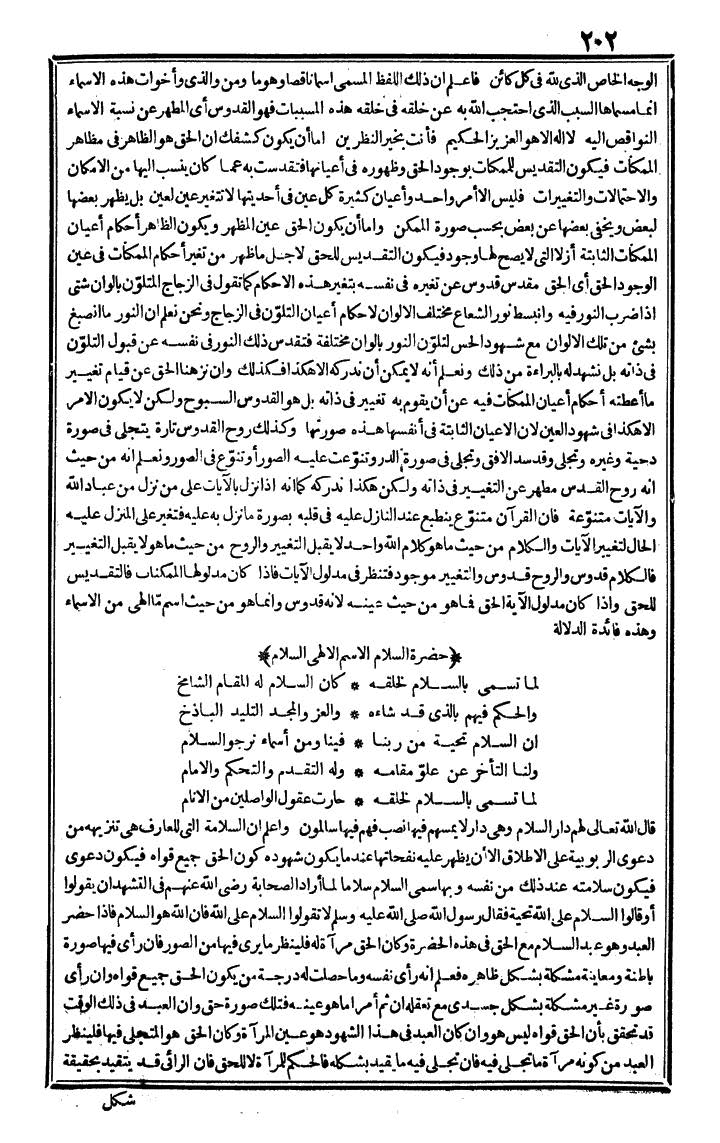 ٢٠٢
الوجه الخاص الذى لله فى كل كائن فاعلم ان ذلك اللفظ المسمى اسما ناقصا وهو ما ومن والذى وأخوات هذه الاسماء
انما مسماها السبب الذى احتجب الله به عن خلقه فى خلقه هذه المسببات فهو القدوس أى المطهر عن نسبة الاسماء
النواقص اليه لا اله الا هو العزيز الحكيم فأنت بخير النظرين اما أن يكون كشفك ان الحق هو الظاهر فى مظاهر
الممكنات فيكون التقديس للممكنات بوجود الحق وظهوره فى أعيانها فتقدست به عما كان ينسب اليها من الامكان
والاحتمالات والتغييرات فليس الا أمر واحد وأعيان كثيرة كل عين فى أحديتها لا تتغير عين لعين بل يظهر بعضها
لبعض ويخفى بعضها عن بعض بحسب صورة الممكن واما أن يكون الحق عين المظهر ويكون الظاهر أحكام أعيان
الممكنات الثابتة أزلا التى لا يصح لها وجود فيكون التقديس للحق لاجل ما ظهر من تغير أحكام الممكنات فى عين
الوجود الحق أى الحق مقدس قدوس عن تغيره فى نفسه بتغير هذه الاحكام كما تقول فى الزجاج المتلوّن بالوان شتى
اذا ضرب النور فيه وانبسط نور الشعاع مختلف الالوان لاحكام أعيان التلوّن فى الزجاج ونحن نعلم ان النور ما انصبغ
بشئ من تلك الالوان مع شهود الحس لتلوّن النور بالوان مختلفة فتقدس ذلك النور فى نفسه عن قبول التلوّن
فى ذاته بل نشهد له بالبراءة من ذلك ونعلم أنه لا يمكن أن ندركه الا هكذا فكذلك وان نزهنا الحق عن قيام تغيير
ما أعطته أحكام أعيان الممكنات فيه عن أن يقوم به تغيير فى ذاته بل هو القدوس السبوح ولكن لا يكون الامر
الا هكذا فى شهود العين لان الاعيان الثابتة فى أنفسها هذه صورتها وكذلك روح القدوس تارة يتجلى فى صورة
دحية وغيره وتجلى وقد سد الافق وتجلى فى صورة الدر وتنوعت عليه الصور أو تنوّع فى الصور ونعلم انه من حيث
انه روح القدس مطهر عن التغيير فى ذاته ولكن هكذا ندركه كما انه اذا نزل بالآيات على من نزل من عباد الله
والآيات متنوّعة فان القرآن متنوّع ينطبع عند النازل عليه فى قلبه بصورة ما نزل به عليه فتغير على المنزل عليه
الحال لتغيير الآيات والكلام من حيث ما هو كلام الله واحد لا يقبل التغيير والروح من حيث ما هو لا يقبل التغيير
فالكلام قدوس والروح قدوس والتغيير موجود فتنظر فى مدلول الآيات فاذا كان مدلولها الممكنات فالتقديس
للحق واذا كان مدلول الآية الحق فما هو من حيث عينه لانه قدوس وانما هو من حيث اسم ما الهى من الاسماء
وهذه فائدة الدلالة
﴿حضرة السلام الاسم الالهى السلام﴾
لما تسمى بالسلام لخلقه * كان السلام له المقام الشامخ
والحكم فيهم بالذى قد شاءه * والعز والمجد التليد الباذخ
ان السلام تحية من ربنا * فينا ومن أسماء نرجو السلام
ولنا التأخر عن علوّ مقامه * وله التقدم والتحكم والامام
لما تسمى بالسلام لخلقه * حارت عقول الواصلين من الانام
قال الله تعالى لهم دار السلام وهى دار لا يمسهم فيها نصب فهم فيها سالمون واعلم ان السلامة التى للعارف هى تنزيهه من
دعوى الربوبية على الاطلاق الا أن يظهر عليه نفحاتها عند ما يكون شهوده كون الحق جميع قواه فيكون دعوى
فيكون سلامته عند ذلك من نفسه وبها سمى السلام سلاما لما أراد الصحابة رضى الله عنهم فى التشهد ان يقولوا
أو قالوا السلام على الله تحية فقال رسول الله صلى الله عليه وسلم لا تقولوا السلام على الله فان الله هو السلام فاذا حضر
العبد وهو عبد السلام مع الحق فى هذه الحضرة وكان الحق مرآة له فلينظر ما يرى فيها من الصور فان رأى فيها صورة
باطنة ومعاينة مشكلة بشكل ظاهره فعلم انه رأى نفسه وما حصلت له درجة من يكون الحق جميع قواه وان رأى
صورة غير مشكلة بشكل جسدى مع تعقله ان ثم أمرا ما هو عينه فتلك صورة حق وان العبد فى ذلك الوقت
قد تحقق بأن الحق قواه ليس هو وان كان العبد فى هذا الشهود هو عين المرآة وكان الحق هو المتجلى فيها فلينظر
العبد من كونه مرآة ما تجلى فيه فان تجلى فيه ما يقيد بشكله فالحكم للمرآة لا للحق فان الرائى قد يتقيد بحقيقة
شكل